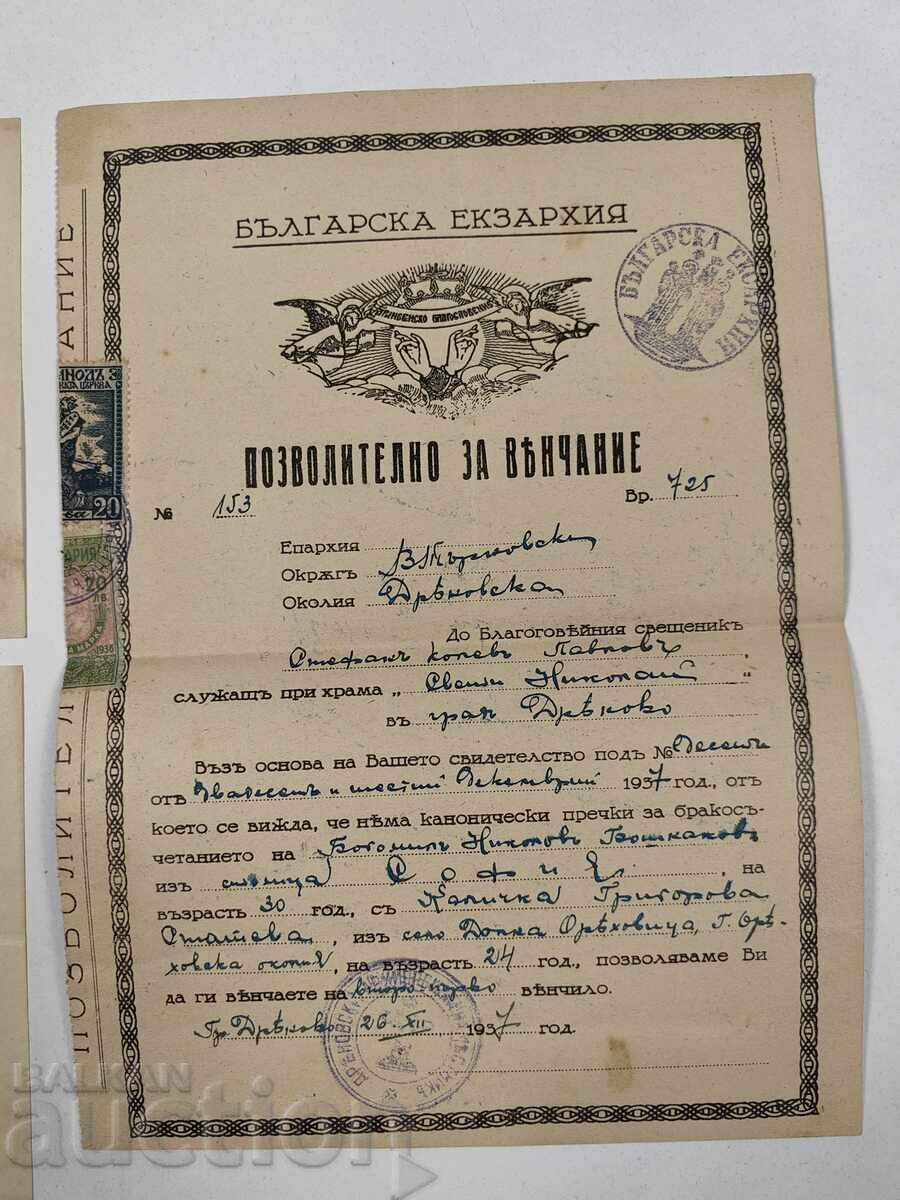 БЪЛГАРСКА ЕКЗАРХИЯ
БЪЛГАРСКА ЕКСАРХИЯ
ПОЗВОЛИТЕЛНО ЗА ВѢНЧАНИЕ
№ 153 Вр. 725
Епархия
Окрѫгъ В Търновски
Околия Дрѣновска
До Благоговѣйния свещеникъ
Стефанъ Колевъ Павловъ
служащъ при храма „Свети Николай“
въ градъ Дрѣново
Възъ основа на Вашето свидетелство подъ № Десети
отъ Двадесет и шести Декемврий 1937 год., отъ
което се вижда, че нѣма канонически пречки за бракосъ-
четанието на Богомилъ Николовъ
изъ столица София, на
възрасть 30 год., съ Каличка Григорова
Статева, изъ село Долна Орѣховица, Г. Орѣ-
ховска околия, на възрасть 24 год., позволяваме Ви
да ги вѣнчаете на второ-първо вѣнчило.
Гр. Дрѣново 26. XII 1937 год.
ЦЪРКВА
20
20
ЛВ.
1938
BALKAN
auction